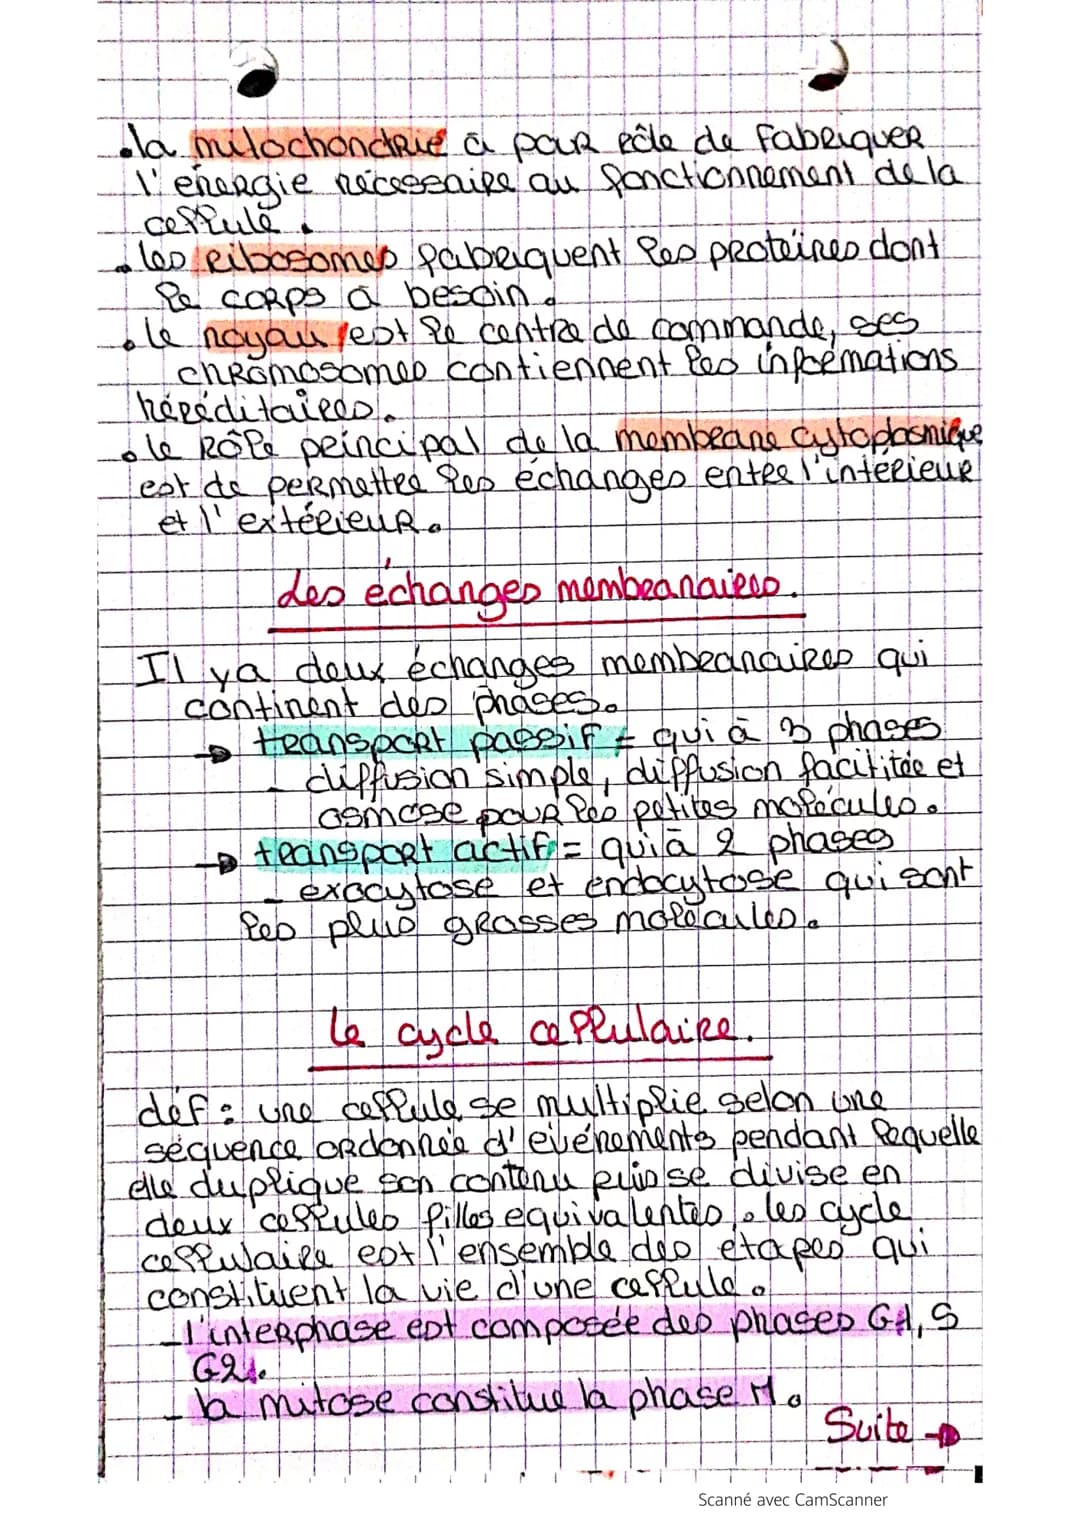 .la mitochondrie à pour rôle de Fabriquer
l'énergie nécessaire au fonctionnement de la
cellule.
.les ribosomes fabriquent les protéines dont
le corps à besoin.
.le noyau est le centre de commande, ses
chromosomes contiennent les informations
héréditaires.
.le Rôle principal de la membrane cytoplasmique
est de permettre les échanges entre l'intérieur
et l'extérieur.
des échanges membranaires.
Il y a deux échanges membranaires qui
continent des phases.
→ transport passif = qui à 3 phases
- diffusion simple, diffusion facilitée et
osmose pour les petites molécules.
→ transport actif = qui à 2 phases
- exocytose et endocytose qui sont
les plus grosses molécules.
le cycle cellulaire.
déf : une cellule se multiplie selon une
séquence ordonnée d'événements pendant lequelle
elle duplique son contenu puis se divise en
deux cellules filles equivalentes. les cycle
cellulaire est l'ensemble des étapes qui
constituent la vie d'une cellule.
- l'interphase est composée des phases G1, S
G2.
- la mitose constitue la phase M.
Suite →
Scanné avec CamScanner